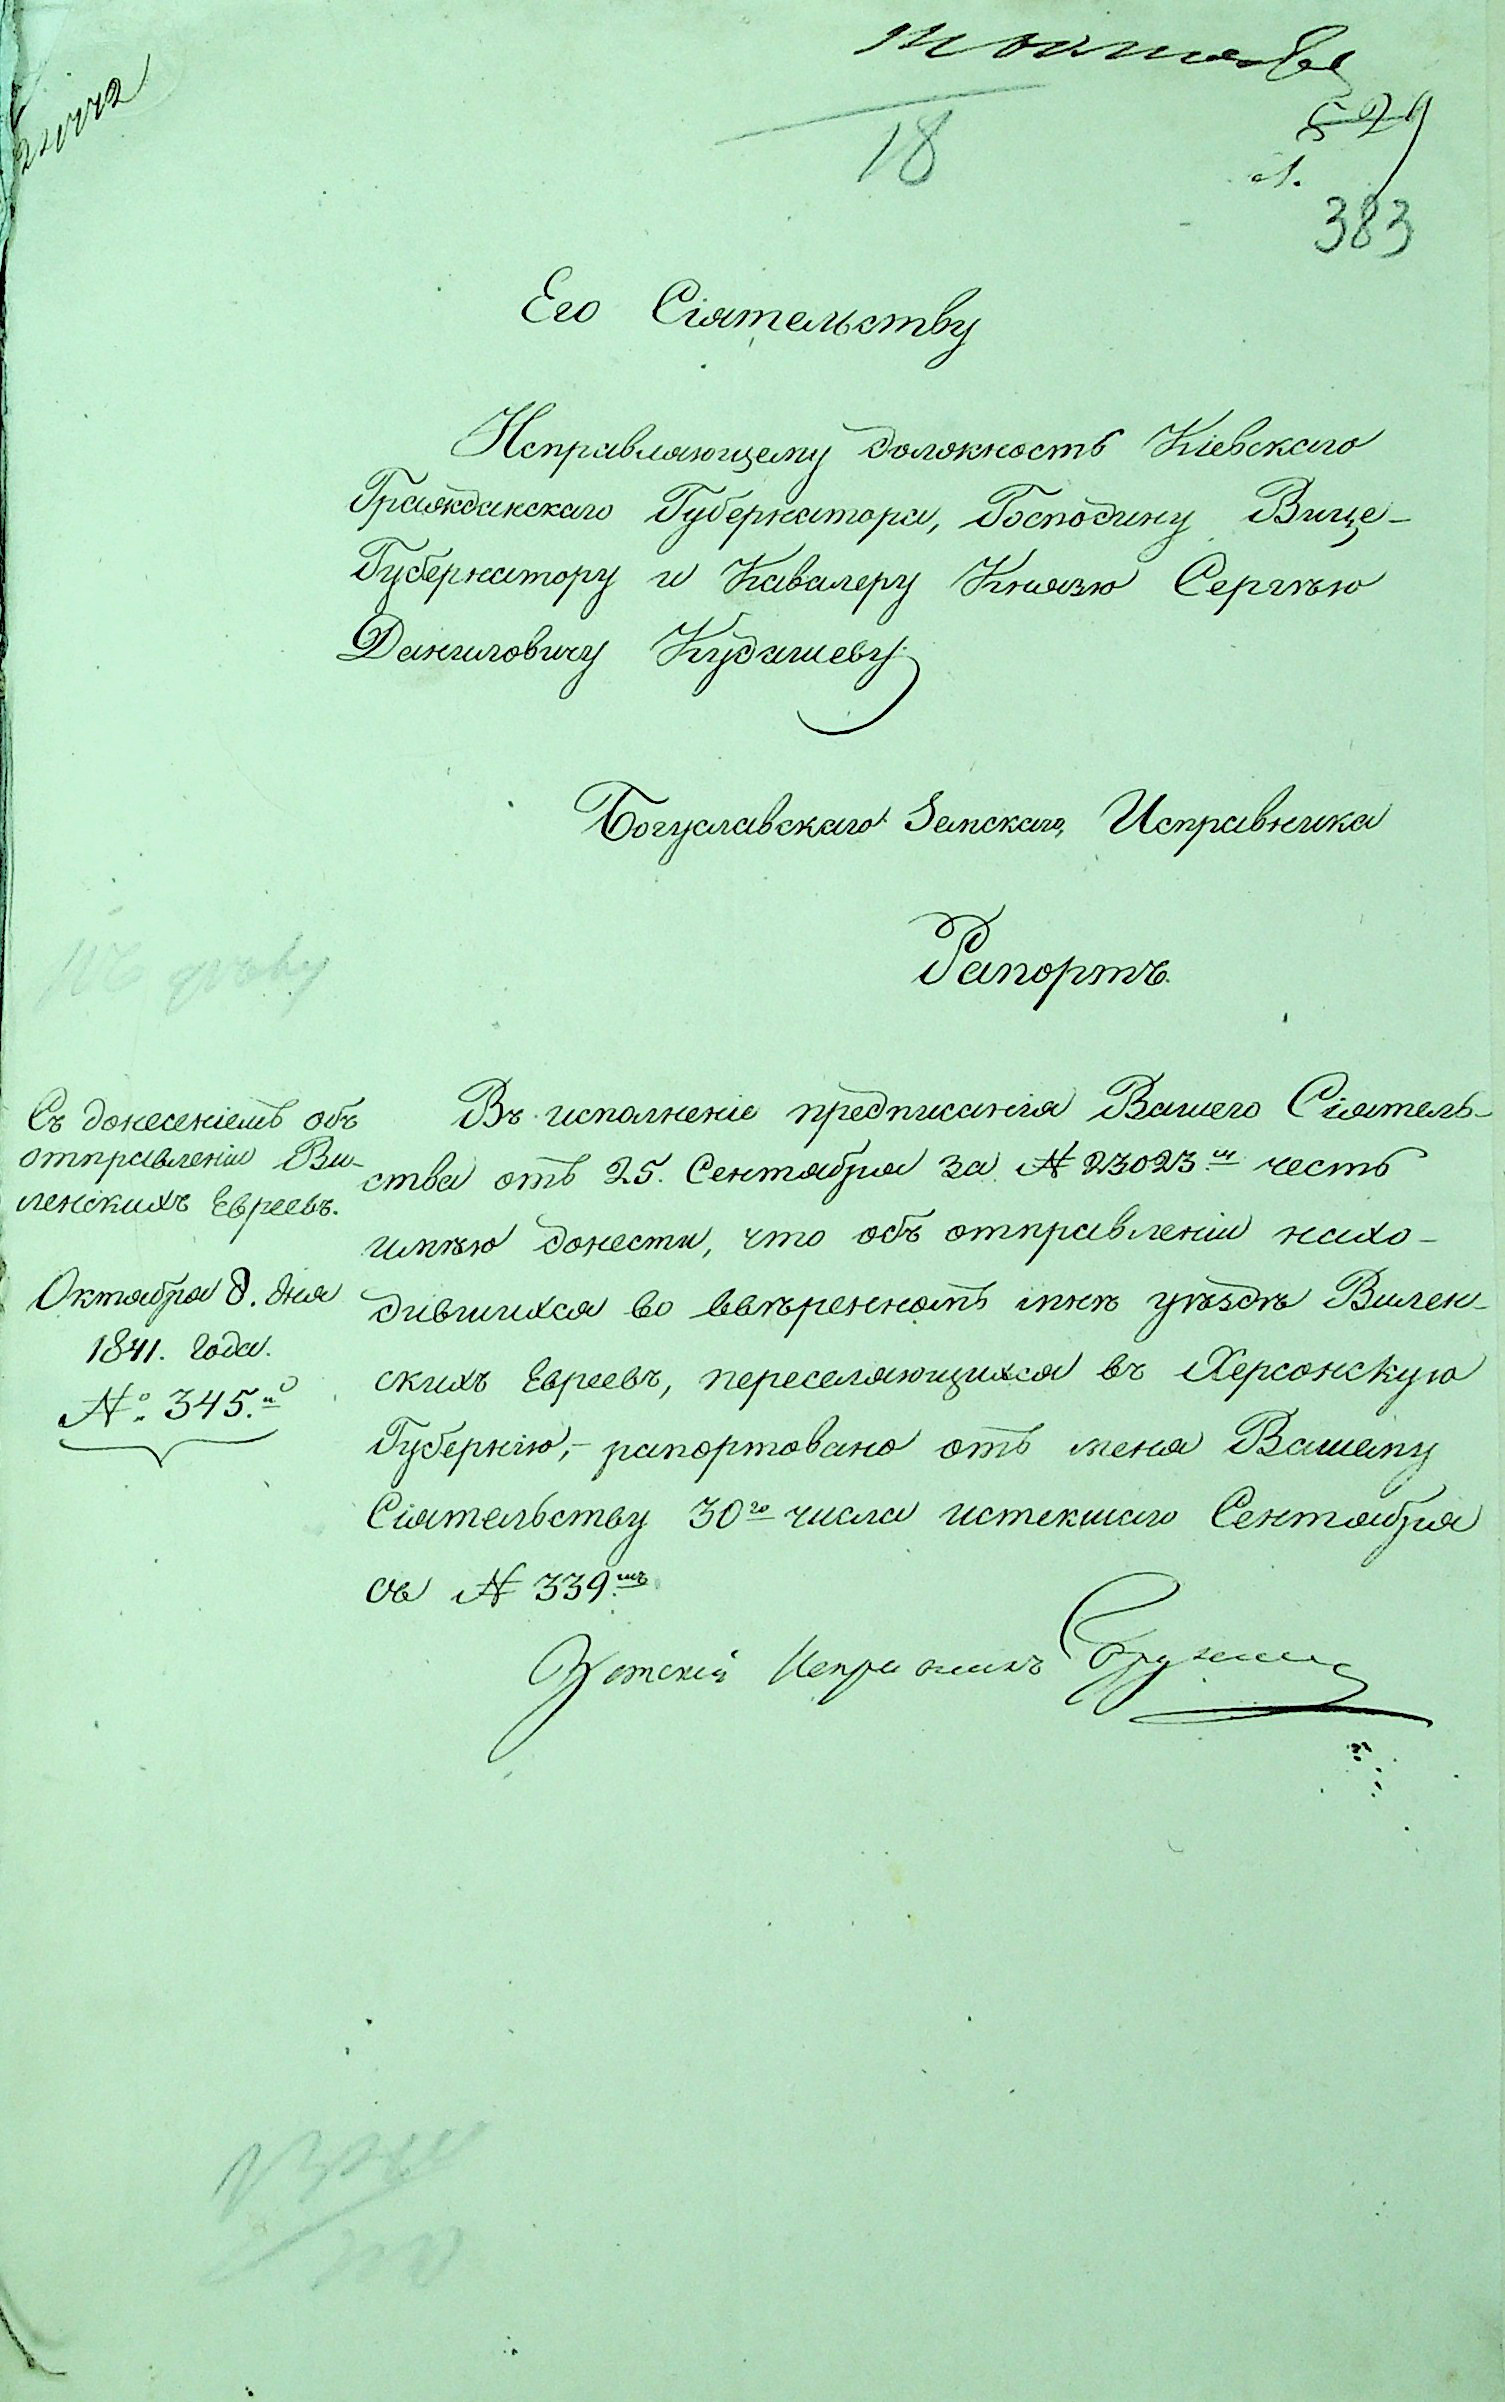 18
383
Его Сіятельству
Исправляющему должность Кіевскаго
Гражданскаго Губернатора, Господину Вице-
Губернатору и Кавалеру Князю Сергѣю
Даниловичу Кудашеву.
Богуславскаго Земскаго Исправника
Рапортъ.
Къ дѣлу
Съ донесеніемъ объ
отправленіи Ви-
ленскихъ Евреевъ.
Октября 8. дня
1841. года.
№ 345.
Въ исполненіе предписанія Вашего Сіятель-
ства отъ 25. Сентября за № 23023.м честь
имѣю донести, что объ отправленіи нахо-
дившихся во ввѣренномъ мнѣ уѣздѣ Вилен-
скихъ Евреевъ, переселяющихся въ Херсонскую
Губернію,- рапортовано отъ меня Вашему
Сіятельству 30го числа истекшаго Сентября
съ № 339.мъ
Земскій Исправникъ